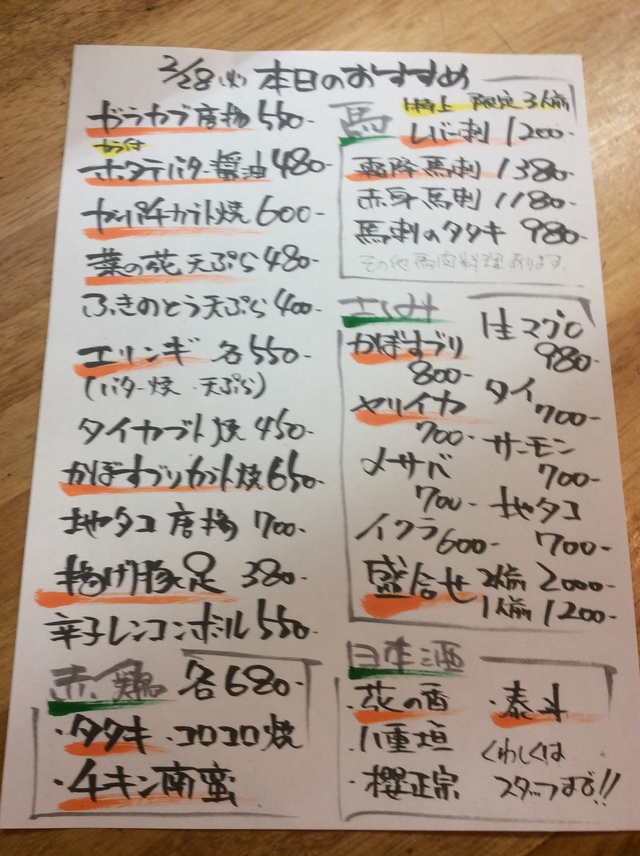 2/28(火) 本日のおすすめ
ガラカブ唐揚 550-
カラ付
ホタテバター醤油 480-
カンパチカブト焼 600-
菜の花 天ぷら 480-
ふきのとう天ぷら 400-
エリンギ 各550-
(バター焼 天ぷら)
タイカブト焼 450-
かぼすブリカブト焼 650-
地タコ 唐揚 700-
揚げ豚足 380-
辛子レンコンボール 550-
赤鶏 各680-
・タタキ ・コロコロ焼
・チキン南蛮
馬 特上 限定3人前
レバー刺 1200-
霜降馬刺 1380-
赤身馬刺 1180-
馬刺のタタキ 980-
その他馬肉料理あります。
さしみ
かぼすブリ
800-
ヤリイカ
700-
メサバ
700-
イクラ 600-
生マグロ
980-
タイ
700-
サーモン
700-
地タコ
700-
盛合せ 2人前 2000-
1人前 1200-
日本酒
・花の香 ・泰斗
・八重垣
・櫻正宗
くわしくは
スタッフまで!!